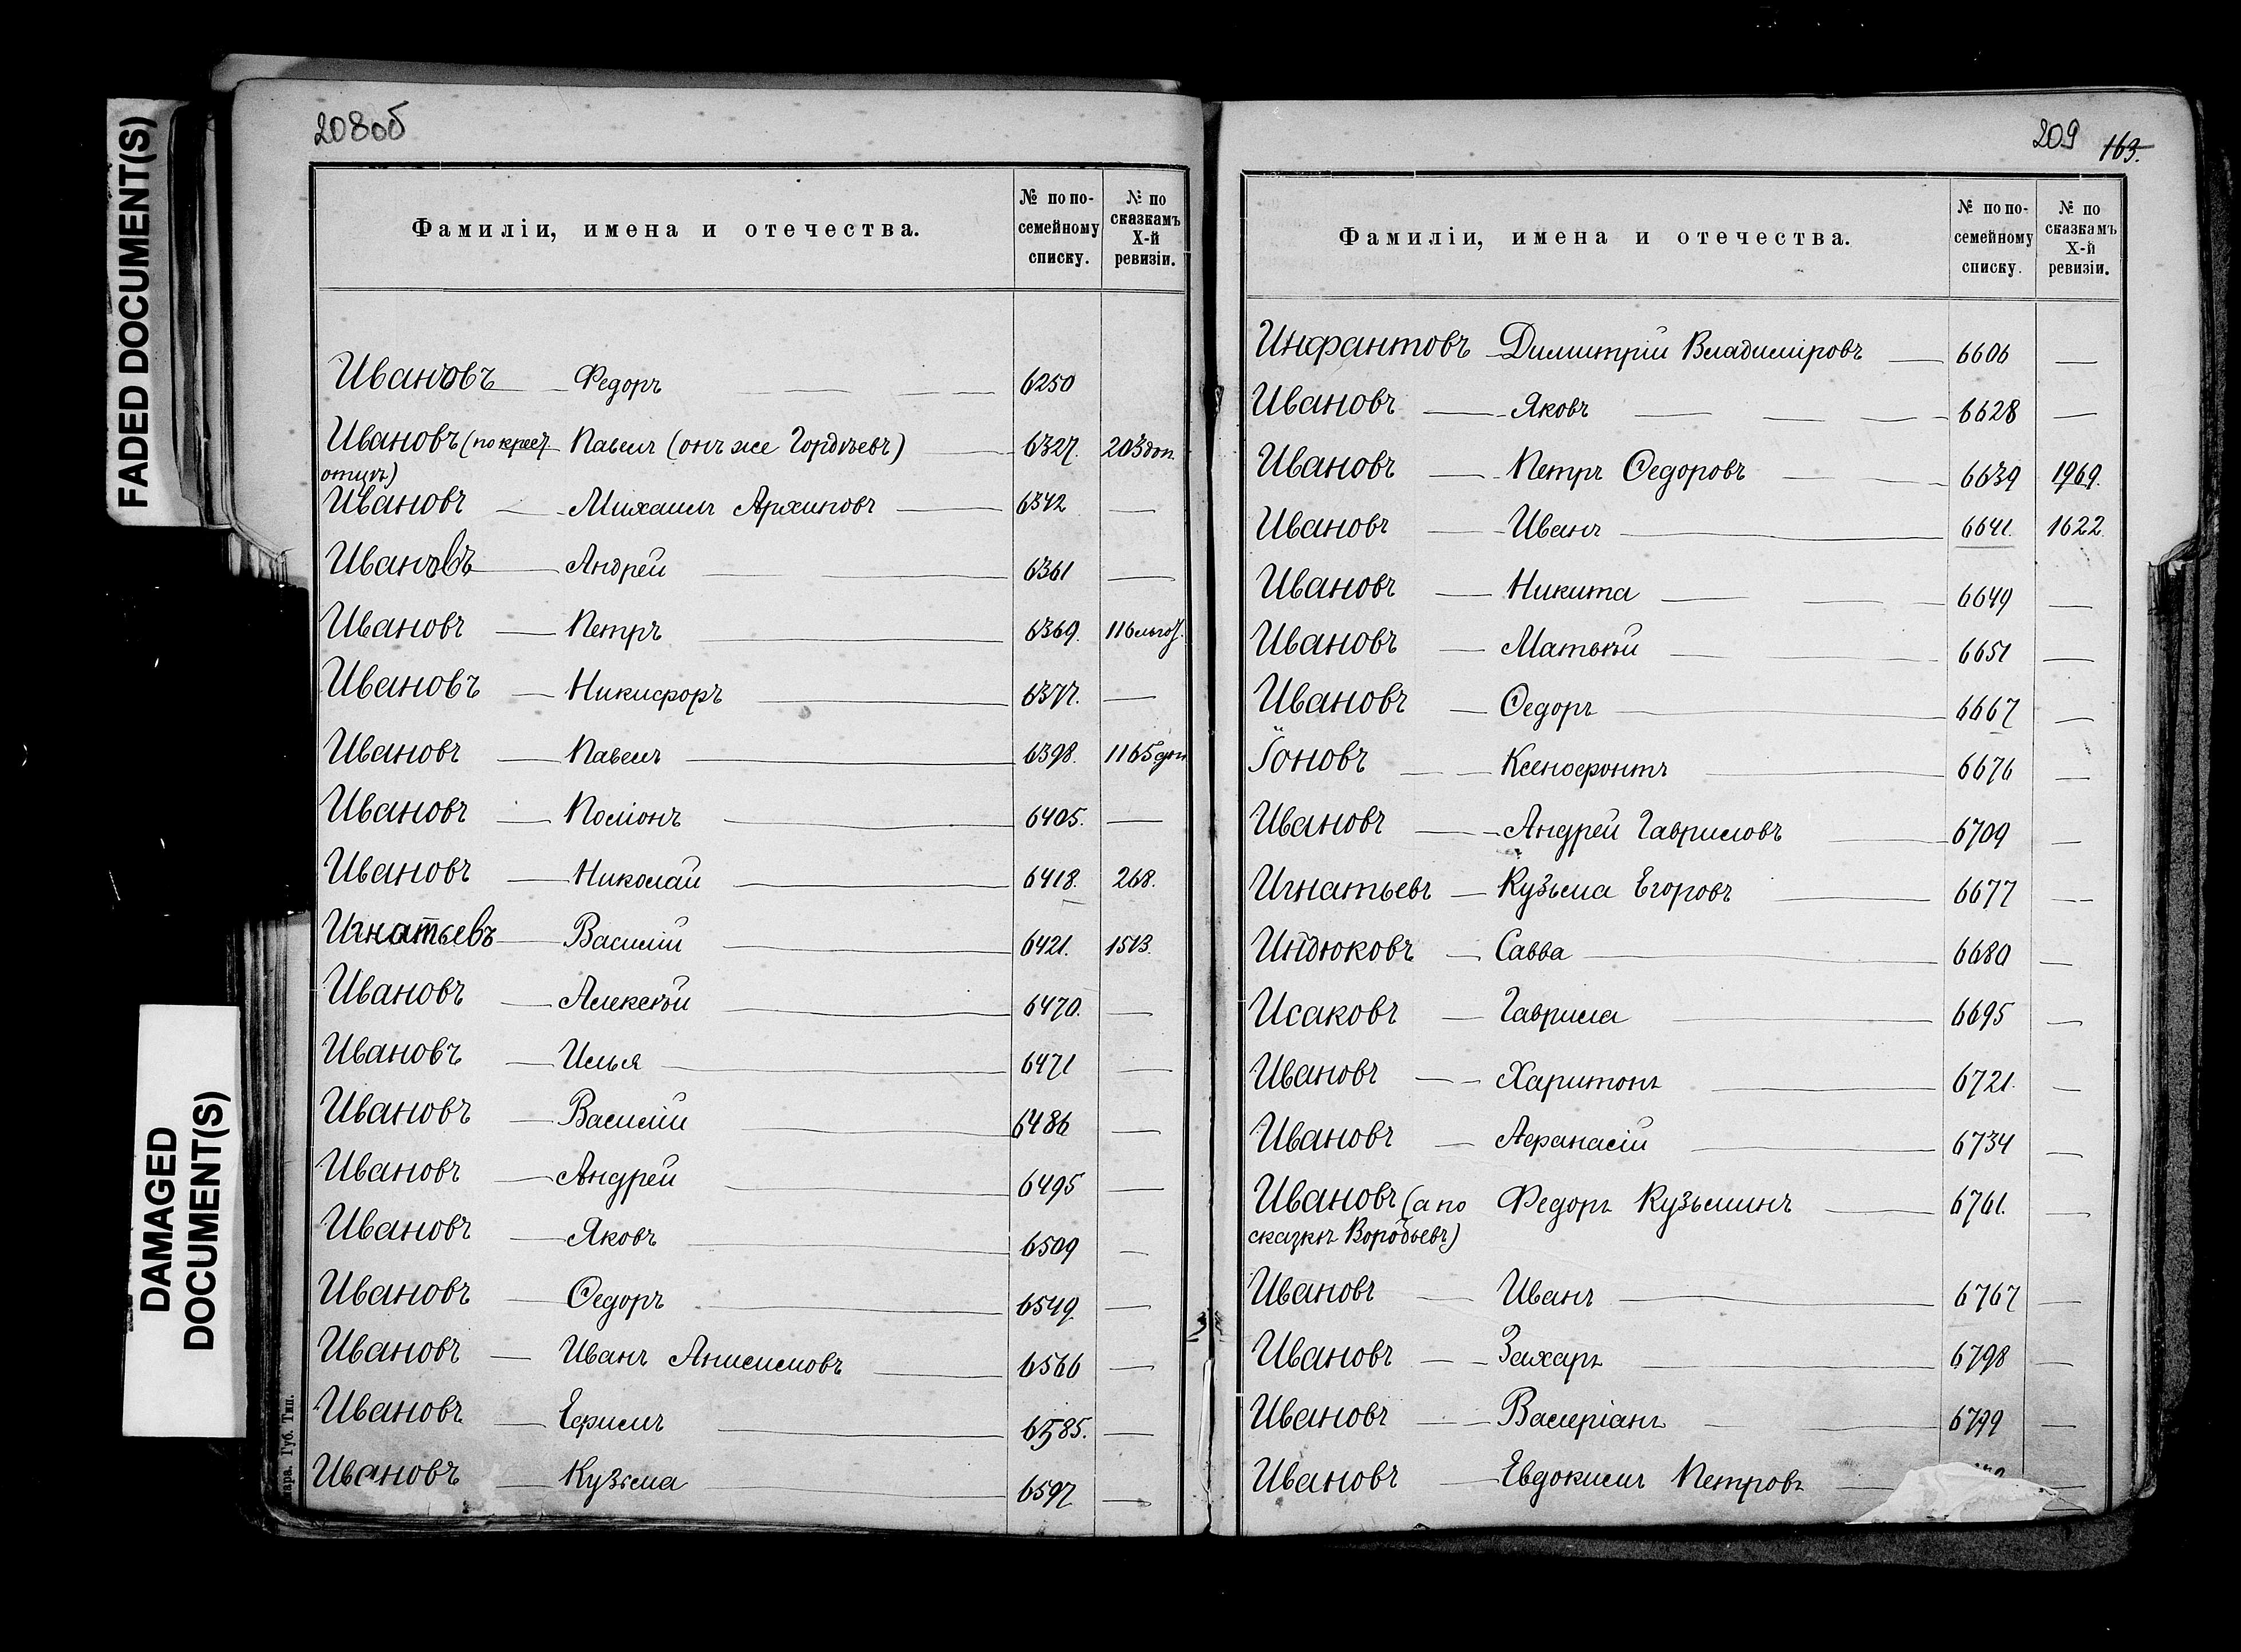 FADED DOCUMENT(S)
DAMAGED
DOCUMENT(S)
208об
Фамиліи, имена и отечества.
№ по по-
семейному
списку.
№ по
сказкамъ
X-й
ревизіи.
Ивановъ — Федоръ — 6250
Ивановъ (по крест. Павелъ (онъ же Гордѣевъ) — 6327. 203 доп.
отцу)
Ивановъ — Михаилъ Архиповъ — 6342 —
Ивановъ — Андрей — 6361 —
Ивановъ — Петръ — 6369. 116
Ивановъ — Никифоръ — 6377. —
Ивановъ — Павелъ — 6398. 1165 доп
Ивановъ — 6405. —
Ивановъ — Николай — 6418. 268.
Игнатьевъ — Василій — 6421. 1513.
Ивановъ — Алексѣй — 6470. —
Ивановъ — Илья — 6471 —
Ивановъ — Василій — 6486 —
Ивановъ — Андрей — 6495 —
Ивановъ — Яковъ — 6509 —
Ивановъ — Ѳедоръ — 6549 —
Ивановъ — Иванъ Анисимовъ — 6566 —
Ивановъ — Ефимъ — 6585. —
Ивановъ — Кузьма — 6597 —
Губ. Тип.
209 163.
Фамиліи, имена и отечества.
№ по по-
семейному
списку.
№ по
сказкамъ
X-й
ревизіи.
Инфантовъ — Димитрій Владиміровъ — 6606 —
Ивановъ — Яковъ — 6628 —
Ивановъ — Петръ Ѳедоровъ — 6639 1969.
Ивановъ — Иванъ — 6641. 1622.
Ивановъ — Никита — 6649 —
Ивановъ — Матвѣй — 6651 —
Ивановъ — Ѳедоръ — 6667 —
Їоновъ — Ксенофонтъ — 6676 —
Ивановъ — Андрей Гавриловъ — 6709 —
Игнатьевъ — Кузьма Егоровъ — 6677 —
Индюковъ — Савва — 6680 —
Исаковъ — Гаврила — 6695 —
Ивановъ — Харитонъ — 6721. —
Ивановъ — Афанасій — 6734 —
Ивановъ (а по Федоръ Кузьминъ — 6761. —
сказкѣ Воробьевъ)
Ивановъ — Иванъ — 6767 —
Ивановъ — Захаръ — 6798 —
Ивановъ — Валеріанъ — 6799 —
Ивановъ — Евдокимъ Петровъ —